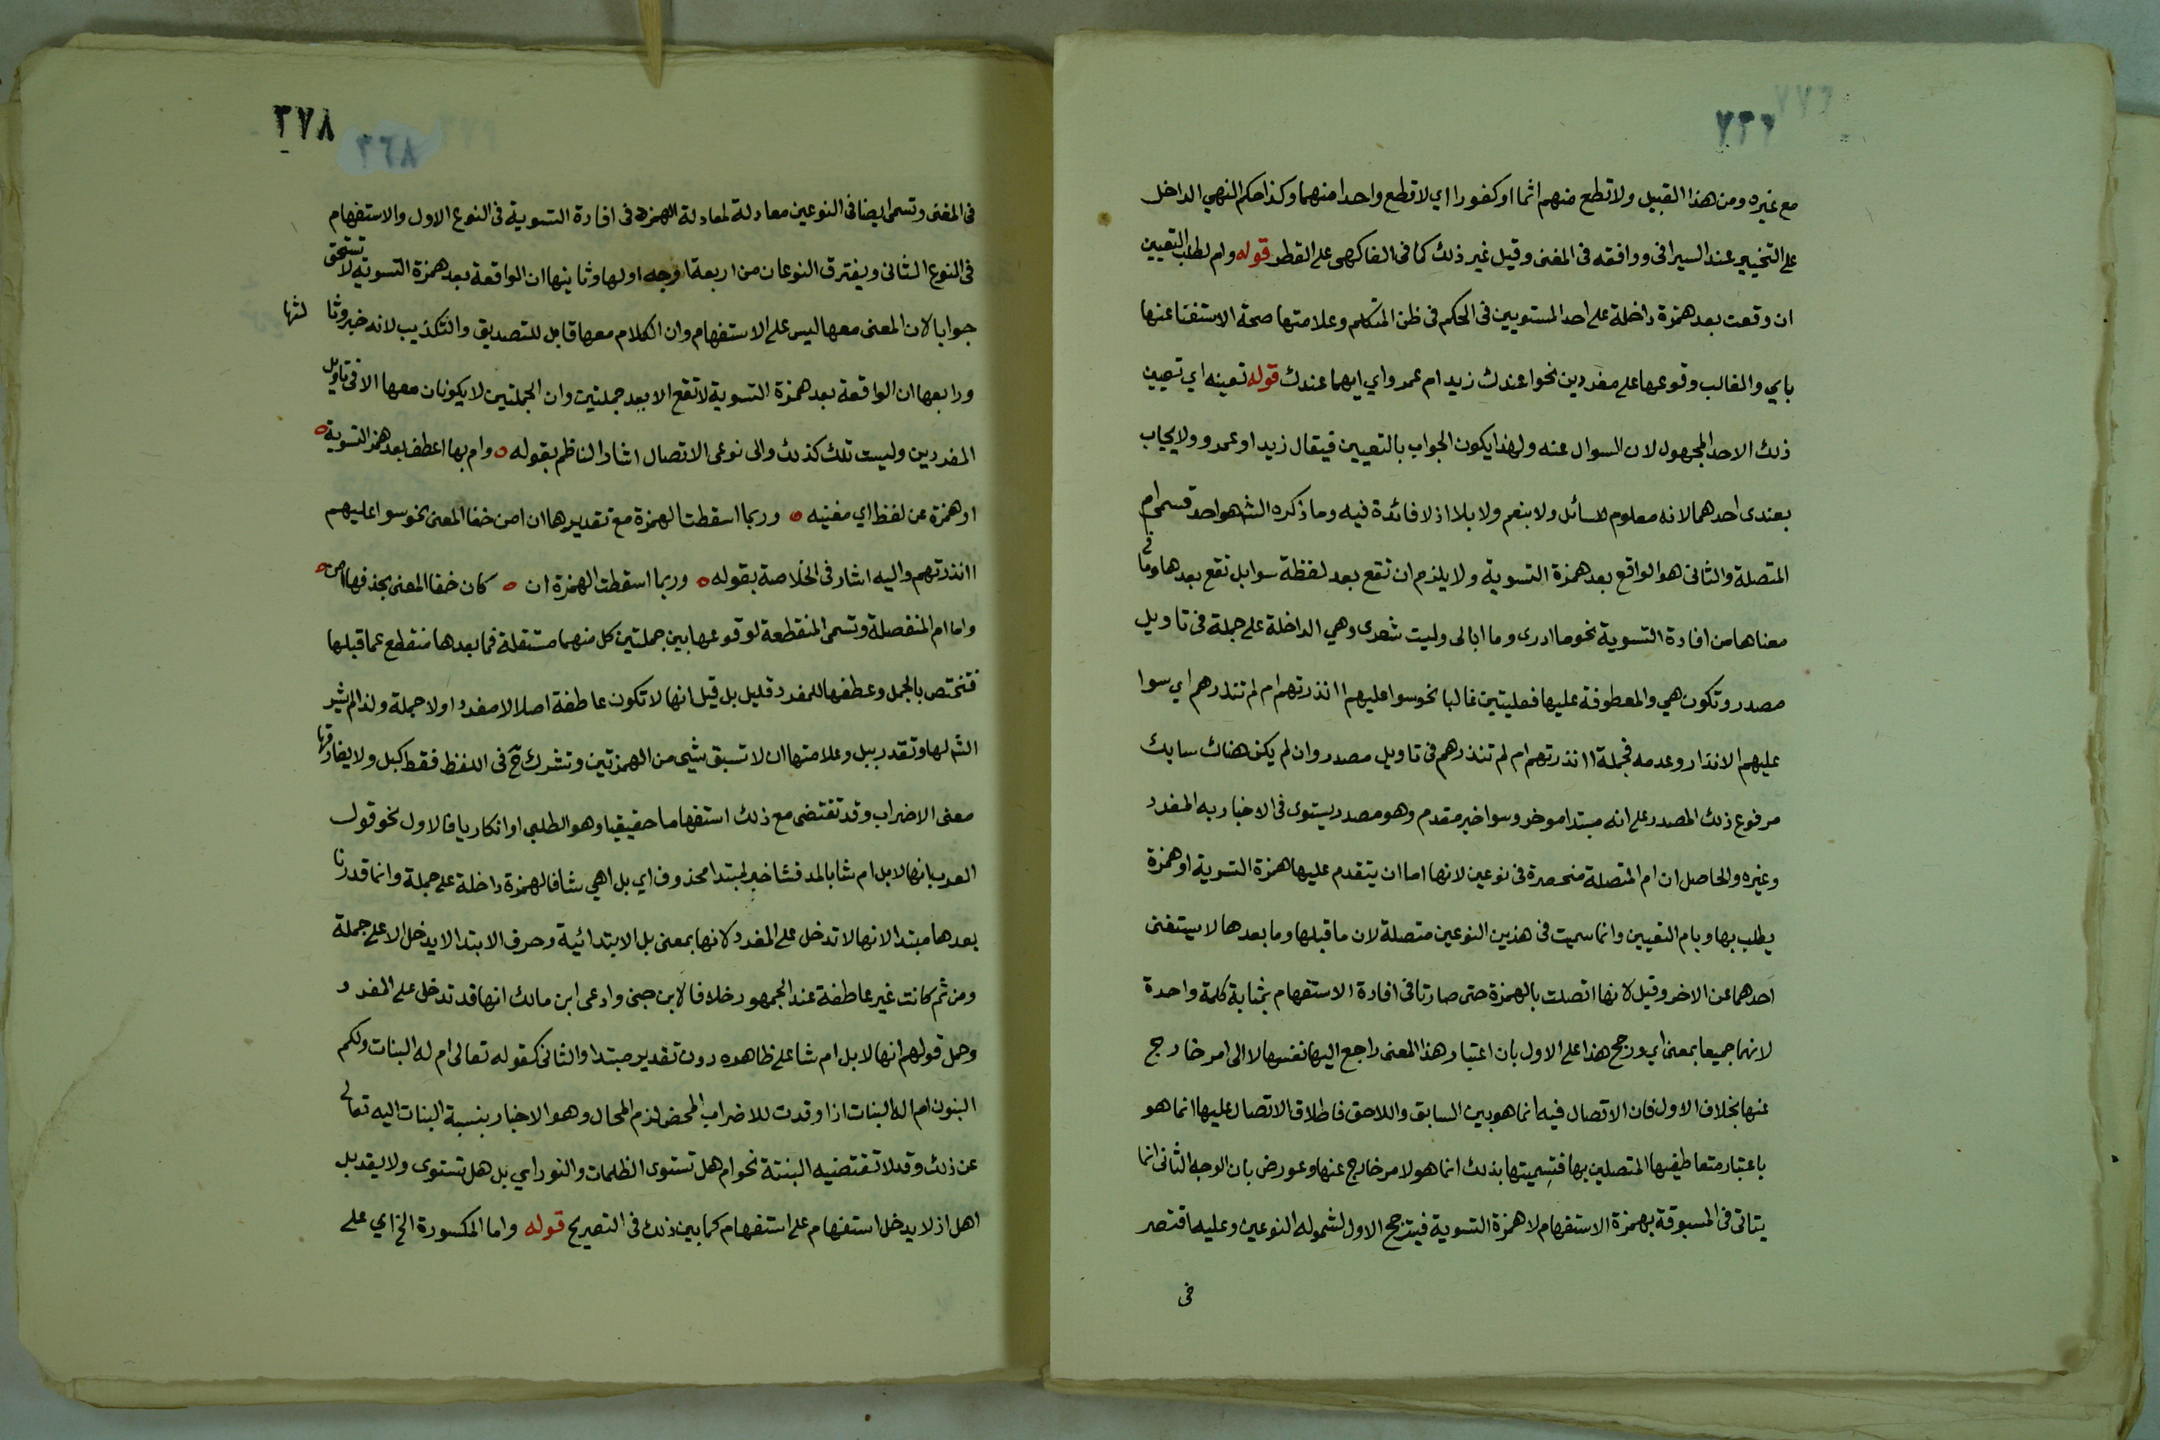 مع غيره ومن هذا القبيل ولا تطع منهم اثما او كفورا اي لا تطع واحدا منهما وكذا حكم النهي الداخل
على التخيير عند السيرافي ووافقه في المغني وقيل غير ذلك كما في الفاكهي على القطر قوله وام لطلب التعيين
ان وقعت بعد همزة داخلة على احد المستويين في الحكم في ظن المتكلم وعلامتها صحة الاستغنا عنها
باي والغالب وقوعها على مفردين نحو اعندك زيد ام عمرو اي ايهما عندك قوله تعينه اي تعيين
ذلك الاحد المجهول لان السوال عنه ولهذا يكون الجواب بالتعيين فيقال زيد او عمرو ولا يجاب
بعندى احدهما لانه معلوم للسائل ولا بنعم ولا بلا اذ لا فائدة فيه وما ذكره الشـ هو احد قسمي ام
المتصلة والثاني هو الواقع بعد همزة التسوية ولا يلزم ان تقع بعد لفظة سوا بل تقع بعدها وما في
معناها من افادة التسوية نحو ما ادرى وما ابالى وليت شعرى وهي الداخلة على جملة في تاويل
مصدر وتكون هي والمعطوفة عليها فعليتين غالبا نحو سوا عليهم اانذرتهم ام لم تنذرهم اي سوا
عليهم الانذار وعدمه فجملة اانذرتهم ام لم تنذرهم في تاويل مصدر وان لم يكن هناك سابك
مرفوع ذلك المصدر على انه مبتدا موخر وسوا خبر مقدم وهو مصدر يستوى في الاخبار به المفرد
وغيره والحاصل ان ام المتصلة منحصرة في نوعين لانها اما ان يتقدم عليها همزة التسوية او همزة
يطلب بها وبام التعيين وانما سميت في هذين النوعين متصلة لان ما قبلها وما بعدها لا يستغنى
احدهما عن الاخر وقيل لانها اتصلت بالهمزة حتى صارتا في افادة الاستفهام بمثابة كلمة واحدة
لانهما جميعا بمعنى اي ورجح هذا على الاول بان اعتبار هذا المعنى راجع اليها نفسها لا الى امر خارج
عنها بخلاف الاول فان الاتصال فيه انما هو بين السابق واللاحق فاطلاق الاتصال عليها انما هو
باعتبار متعاطفيها المتصلين بها فتسميتها بذلك انما هو لامر خارج عنها وعورض بان الوجه الثاني انما
يتاتى في المسبوقة بهمزة الاستفهام لا همزة التسوية فيترجح الاول لشموله النوعين وعليه اقتصر
في
٣٧٨
٣٦٨
في المغني وتسمى ايضا في النوعين معادلة لمعادلة الهمزة في افادة التسوية في النوع الاول والاستفهام
في النوع الثاني ويفترق النوعان من اربعة اوجه اولها وثانيها ان الواقعة بعد همزة التسوية لا تستحق
جوابا لان المعنى معها ليس على الاستفهام وان الكلام معها قابل للتصديق والتكذيب لانه خبر وثا لثها
ورابعها ان الواقعة بعد همزة التسوية لا تقع الا بعد جملتين وان الجملتين لا يكونان معها الا في تاويل
المفردين وليست تلك كذلك والى نوعي الاتصال اشار الناظم بقوله ه وام بها اعطف بعد همز التسوية ه
او همزة عن لفظ اي مغنيه ه وربما اسقطت الهمزة مع تقديرها ان امن خفا المعنى نحو سوا عليهم
اانذرتهم واليه اشار في الخلاصة بقوله ه وربما اسقطت الهمزة ان ه كان خفا المعنى بحذفها امن ه
واما ام المنفصلة وتسمى المنقطعة لوقوعها بين جملتين كل منهما مستقلة فما بعدها منقطع عما قبلها
فتختص بالجمل وعطفها للمفرد قليل بل قيل انها لا تكون عاطفة اصلا لا مفردا ولا جملة ولذا لم يشر
الشـ لها وتقدر ببل وعلامتها ان لا تسبق بشي من الهمزتين وتشرك ح في اللفظ فقط كبل ولا يفارقها
معنى الاضراب وقد تقتضى مع ذلك استفهاما حقيقيا وهو الطلبي او انكاريا فالاول نحو قول
العرب انها لابل ام شا بالمد فشا خبر لمبتدا محذوف اي بل اهي شا فالهمزة داخلة على جملة وانما قدرنا
بعدها مبتدا لانها لا تدخل على المفرد لانها بمعنى بل الابتدائية وحرف الابتدا لا يدخل الا على جملة
ومن ثم كانت غير عاطفة عند الجمهور خلافا لابن جني وادعى ابن مالك انها قد تدخل على المفرد
وحمل قولهم انها لابل ام شا على ظاهره دون تقدير مبتدا والثاني كقوله تعالى ام له البنات ولكم
البنون ام اله البنات اذ لو قدرت للاضراب المحض لزم المحال وهو الاخبار بنسبة البنات اليه تعالى
عن ذلك وقد لا تقتضيه البتة نحو ام هل تستوى الظلمات والنور اي بل هل تستوى ولا يقدر بل
اهل اذ لا يدخل استفهام على استفهام كما بين ذلك في التصريح قوله واما المكسورة الخ اي على